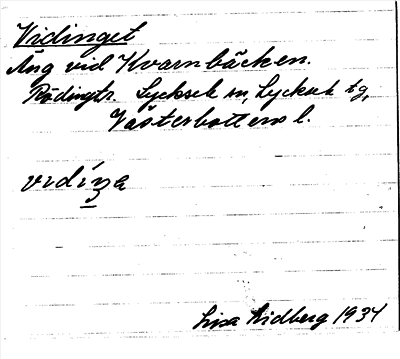 Vidinget
Äng vid Kvarnbäcken.
Rödingtr. Lycksele sn, Lycksele tg,
Västerbottens l.
vidíŋa
Lisa Lidberg 1934